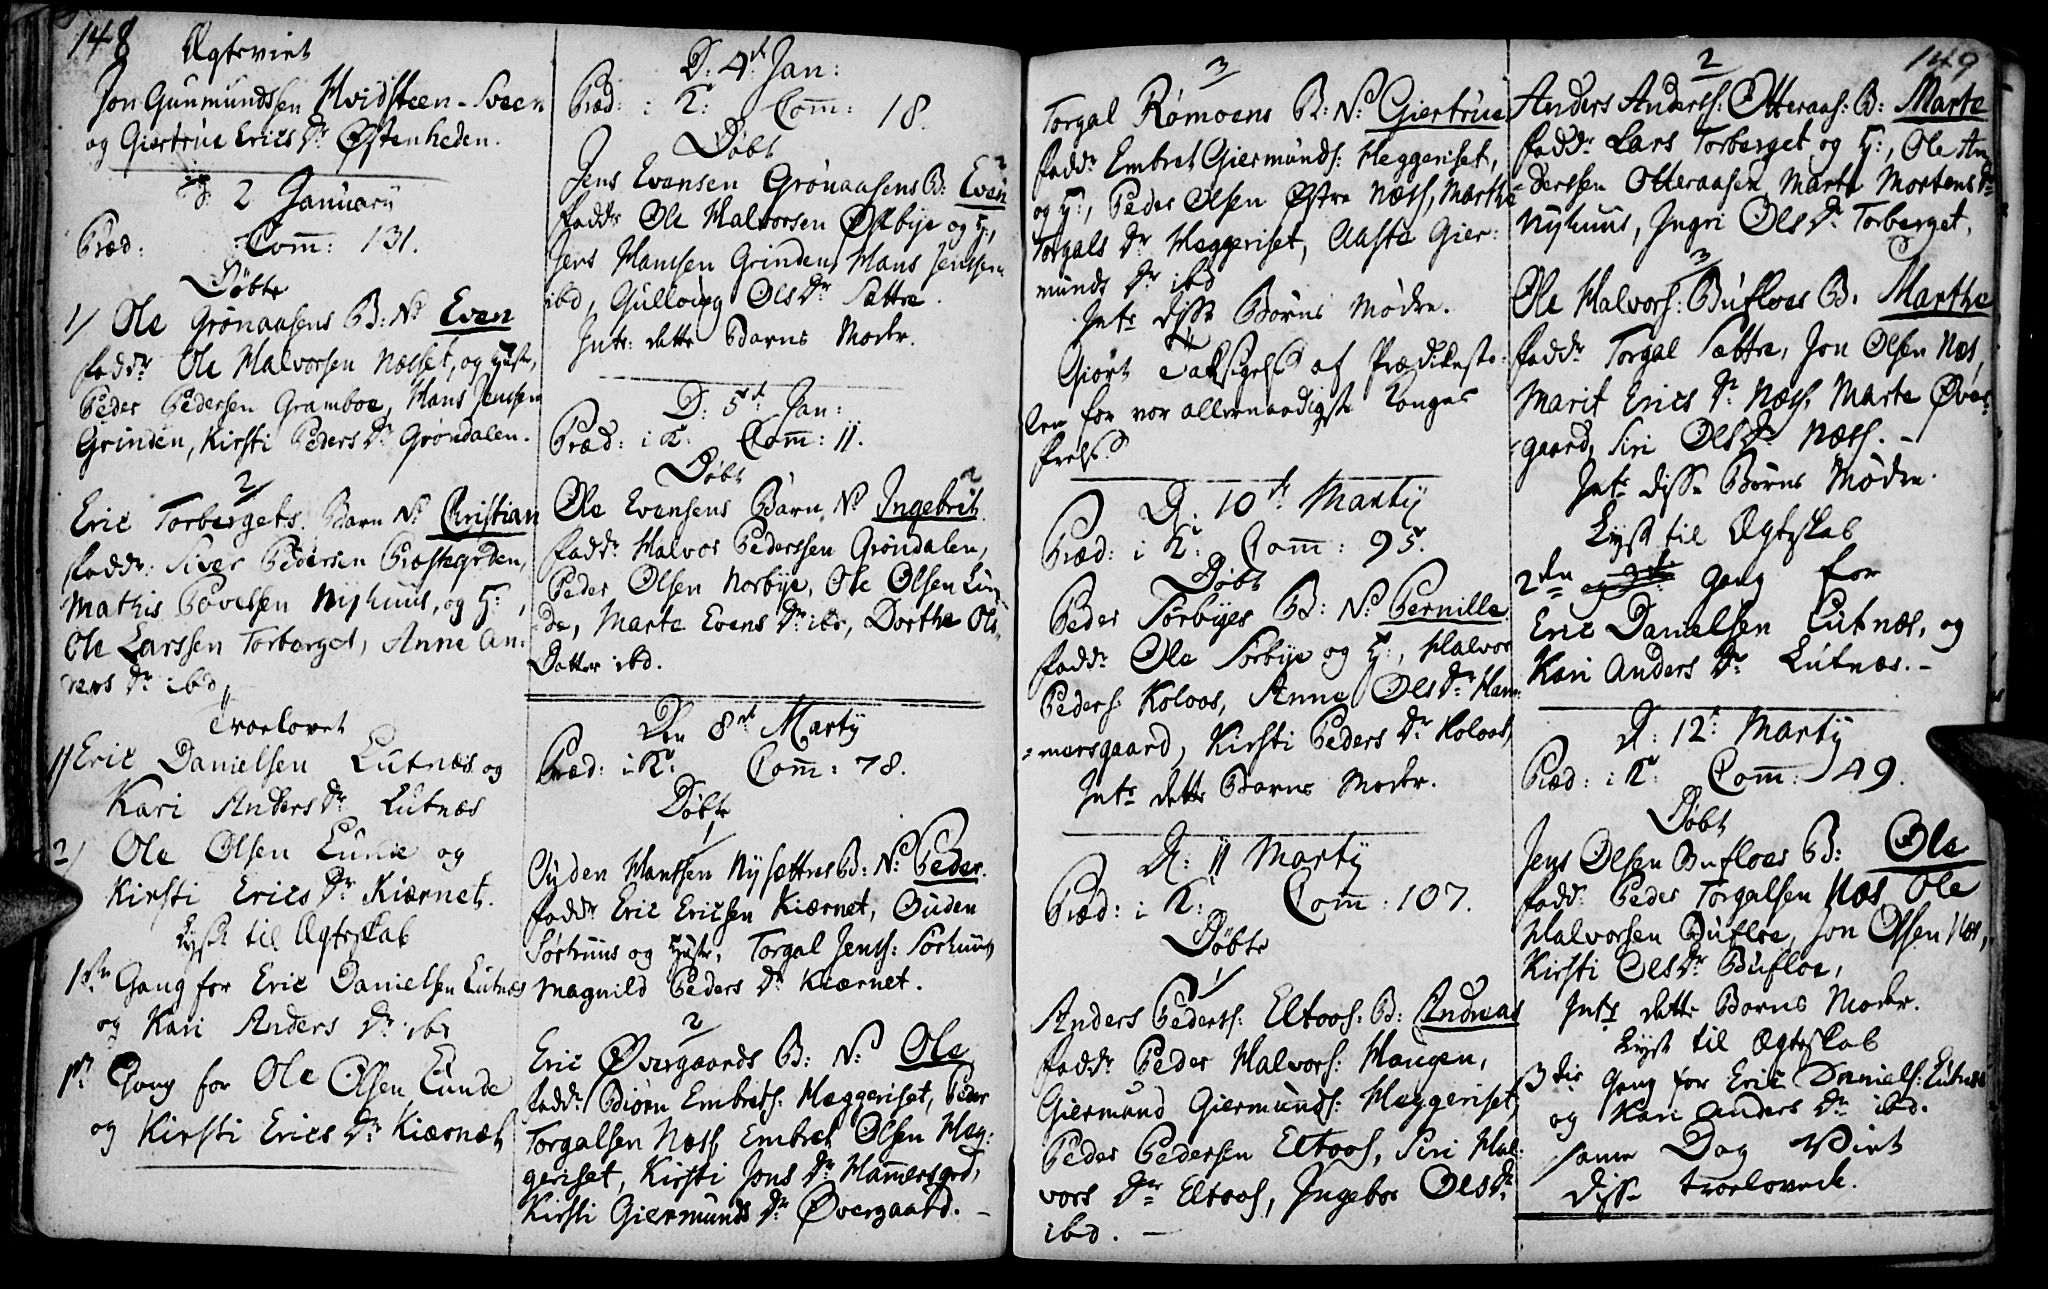 148
Ægteviet
Jon Gunmundssen Hvidsteen-Sveen
og Giertrue Erics Dr Østenheden.
D: 2 Januarij
Præd: Com̄: 131.
Døbte
1) Ole Grønaasens B: N: Even
fadd: Ole Halvorsen Næsset, og Hustr,
Peder Pedersen Gramboe, Hans Jenssen
Grinden, Kirsti Peders Dr Grøndalen.
2/
Eric Torbergets Barn N: Christian
fadd: Siver Pedersen Præstegrden,
Mathis Povelsen Nyhuus, og H:,
Ole Larssen Torberget, Anne An-
ners Dr ibd.
Troelovet
1) Eric Danielsen Lutnæs og
Kari Anders Dr Lutnæs
2) Ole Olsen Lunde og
Kirsti Erics Dr Kiærnet.
Lyst til Ægteskab
1ste Gang for Eric Danielsen Lutnæs
og Kari Anders Dr ibd
1ste Gang for Ole Olsen Lunde
og Kirsti Erics Dr Kiærnet
D: 4de Jan:
Præd: i K: Com̄: 18.
Døbt
Jens Evensen Grønaasens B: Even
fadd: Ole Halvorsen Østbye og H:,
Jens Hansen Grinden, Hans Jenssen
ibd, Gulloug Ols Dr Sættre.
Intr: dette Barns Moder.
D: 5te Jan:
Præd: i K: Com̄: 11.
Døbt
Ole Evensens Barn N: Ingebrit
fadd: Halvor Pederssen Grøndalen,
Peder Olsen Norbye, Ole Olsen Lun-
de, Marte Evens Dr ibd, Dorthe Ols
Datter ibd.
Den 8de Martij
Præd: i K: Com̄: 78.
Døbte
1/
Ouden Hantsen Nysættres B: N: Peder.
fadd: Eric Ericsen Kiærnet, Ouden
Sørhuus og Hustr, Torgal Jens: Sørhuus,
Magnild Peders Dr Kiærnet.
2/
Eric Øvergaards B: N: Ole
fadd: Biørn Embrets: Heggeriset, Peder
Torgalsen Næss, Embret Olsen Heg-
geriset, Kirsti Jons Dr Ham̄ersgrd,
Kirsti Giermunds Dr Øvergaard.
3/
Torgal Rømoens B: N: Giertrue
fadd: Embret Giermunds: Heggeriset,
og H:, Peder Olsen Østre Næss, Marthe
Torgals Dr Heggeriset, Aaste Gier-
munds Dr ibd
Intr disse Børns Mødre.
Giort Taksigelse af Prædikesto-
len for vor allernaadigste Konges
frelse.
D: 10de Martij
Præd: i K: Com̄: 95.
Døbt
Peder Sørbyes B: N: Pernille
fadd: Ole Sørbye og H:, Halvor
Peders: Koloos, Anne Ols Dr Ham-
mersgaard, Kirsti Peders Dr Koloos,
Intr dette Barns Moder.
D: 11 Martij
Præd: i K: Com̄: 107.
Døbte
1/
Anders Peders: Eltoos: B: Andreas
fadd: Peder Halvors: Haugen,
Giermund Giermunds: Heggeriset,
Peder Pedersen Eltoos, Siri Hal-
vors Dr Eltoos, Ingebor Ols Dr
ibd.
149
2
Anders Anders: Otteraas: B: Marte
fadd: Lars Torberget og H:, Ole An-
derssen Otteraasen, Marte Mortens Dr
Nyhuus, Ingri Ols Dr Torberget.
3/
Ole Halvors: Bufloes B: Marthe
fadd: Torgal Sættre, Jon Olsen Næs,
Marit Erics Dr Næss, Marte Øver-
gaard, Siri Ols Dr Næss.
Intr disse Børns Mødre.
Lyst til Ægteskab
2den Gang for
Eric Danielsen Lutnæs, og
Kari Anders Dr Lutnæs.
D: 12te Martij
Præd: i K: Com̄: 49.
Døbt
Jens Olsen Bufloes B: Ole
fadd: Peder Torgalsen Næs, Ole
Halvorsen Bufloe, Jon Olsen Næs,
Kirsti Ols Dr Bufloe,
Intr dette Barns Moder.
Lyst til Ægteskab
3die Gang for Eric Daniels: Lutnæs
og Kari Anders Dr ibd.
samme Dag Viet
disse troelovede.